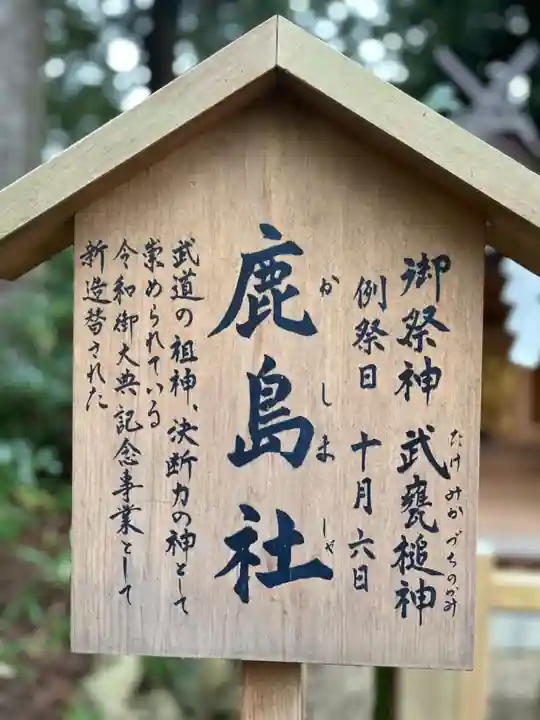 御祭神 武甕槌神
たけみかづちのかみ
例祭日 十月六日
鹿島社
かしましゃ
武道の祖神、決断力の神として
崇められている
令和御大典記念事業として
新造替された